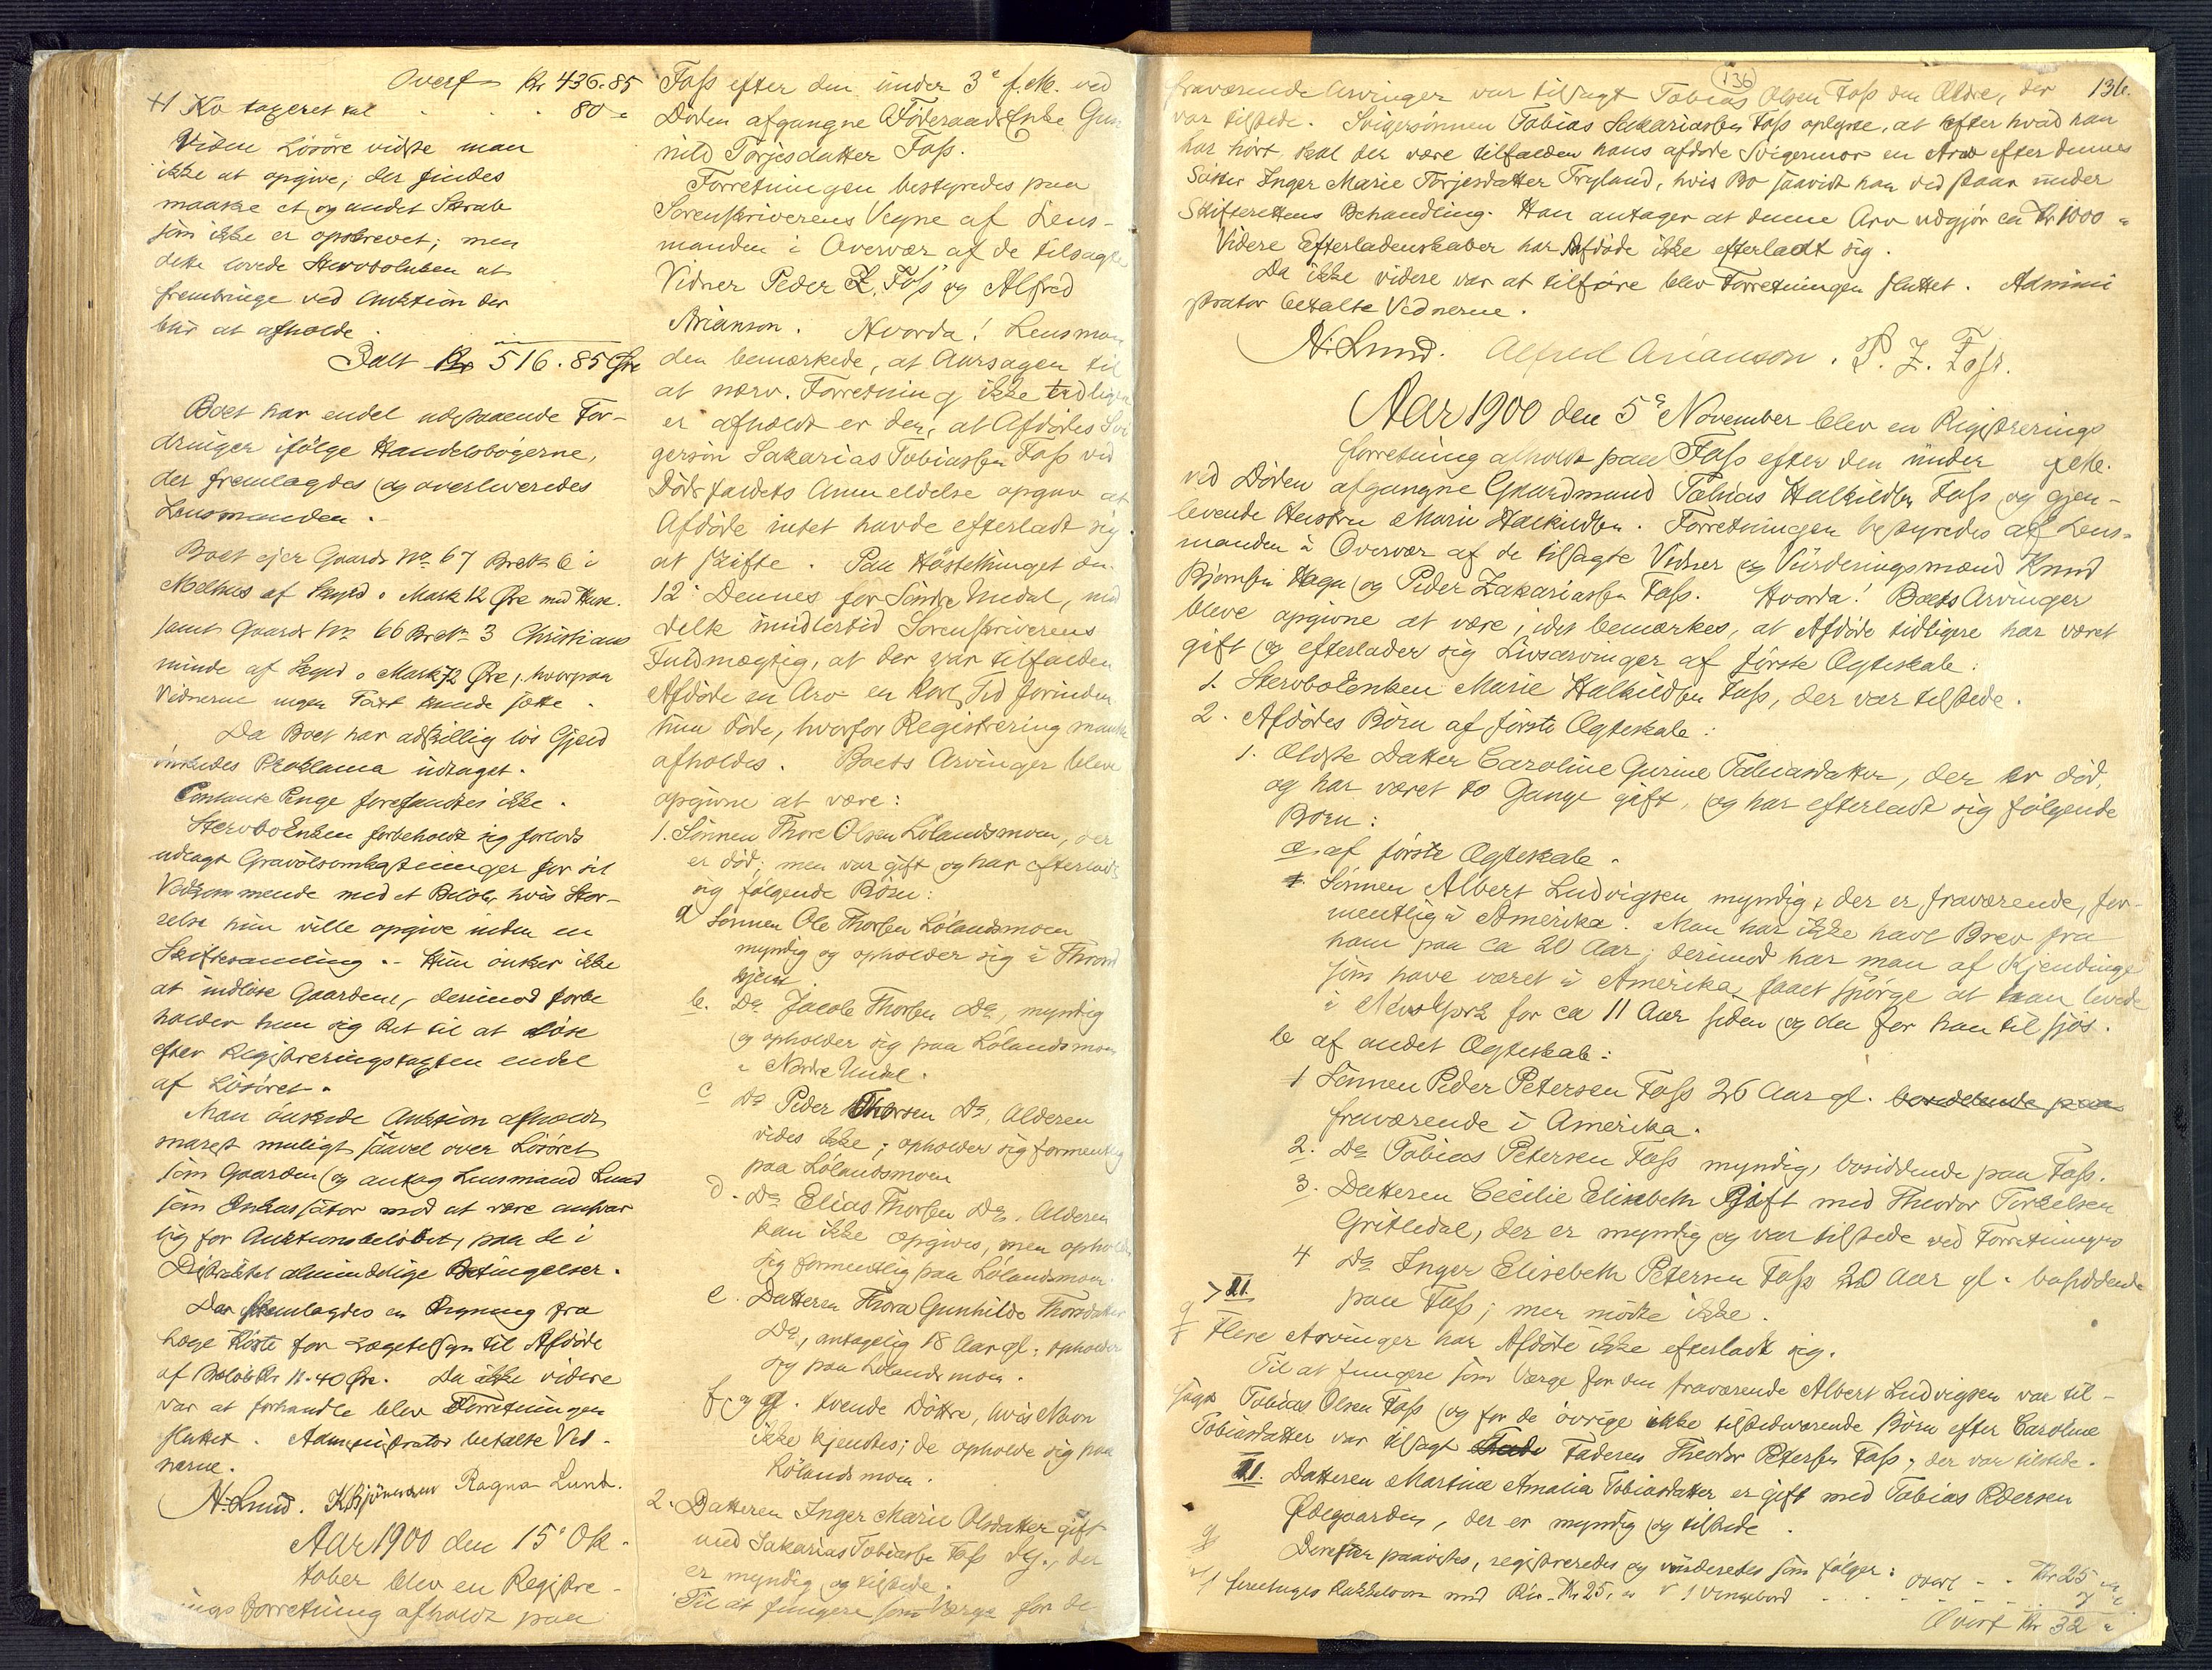 Overf Kr 436.85
+1 Ko taxeret til . . . 80 "
Viden Lösöre vidste man
ikke at opgive; der findes
maaske et og andet Skrab
som ikke er opskrevet; men
dette lovede Stervboenken at
frembringe ved Auktion der
blir at afholde.
Ialt Kr 516.85 Øre
Boet har endel udestaaende For-
dringer ifölge Handelsbögerne,
der fremlagdes og overleveredes
Lensmanden.
Boet ejer Gaards No 67 Brets 6 i
Melhus af Skyld 0 Mark 12 Øre med Huse.
samt Gaards No 66 Brets 3 Christians
minde af Skyld 0 Mark 72 Øre, hvorpaa
Vidnerne ingen Taxt kunde sætte.
Da Boet har adskillig lös Gjeld
önskedes Proklama udtaget.
Contante Penge forefandtes ikke.
StervboEnken forbeholdt sig forlods
udlagt Gravölsomkostninger for sit
Vedkommende med et Belöb, hvis Stör-
relse hun ville opgive inden en
Skiftesamling. - Hun önsker ikke
at indlöse Gaardene, derimod forbe
holder hun sig Ret til at löse
efter Registreringstaxten endel
af Lösöret.
Man önskede Auktion afholdt
snarest muligt saavel over Lösöret
som Gaarden og antog Lensmand Lund
som Inkassator mod at være ansvar
lig for Auktionsbelöbet, paa de i
Distriktet almindelige Betingelser.
Der fremlagdes en Regning fra
Læge Röste for Lægetilsyn til Afdöde
af Belöb Kr 18.40 Øre. Da ikke videre
var at forhandle blev Forretningen
sluttet. Administrator betalte Vid-
nerne.
N. Lund. K Bjönnesen Ragna Lund.
Aar 1900 den 15de Ok-
tober blev en Registre-
ings forretning afholdt paa
Foss efter den under 3e f.M. ved
Döden afgangne FöderaadsEnke Gun
nild Torjesdatter Foss.
Forretningen bestyredes paa
Sorenskriverens Vegne af Lens-
manden i Overvær af de tilsagte
Vidner Peder Z. Foss og Alfred
Arianson. Hvorda! Lensman
den bemærkede, at Aarsagen til
at nærv. Forretning ikke tidligere
er afholdt er den, at Afdödes Svi
gersön Sakarias Tobiassen Foss ved
Dödsfaldets Anmeldelse opgav at
Afdöde intet havde efterladt sig
at skifte. Paa Höstethinget den
12' Dennes for Söndre Undal, med
delte imidlertid Sorenskriverens
Fuldmægtig, at der var tilfalden
Afdöde en Arv en kort Tid forinden
hun döde, hvorfor Registrering maatte
afholdes. Boets Arvinger bleve
opgivne at være:
1. Sönnen Thore Olsen Lölandsmoen, der
er död; men var gift og har efterladt
sig fölgende Börn:
a Sönnen Ole Thorsen Lölandsmoen
myndig og opholder sig i Thrond
hjem.
b. Do Jacob Thorsen Do, myndig
og opholder sig paa Lölandsmoen
i Nordre Undal.
c Do Peder Thorsen Do. Alderen
vides ikke; opholder sig formentlig
paa Lölandsmoen
d. Do Elias Thorsen Do. Alderen
kan ikke opgives, men opholder
sig formentlig paa Lölandsmoen.
e. Datteren Thora Gunhilde Thorsdatter
Do, antagelig 18 Aar gl. opholder
sig paa Lölandsmoen.
f. og g. tvende Döttre, hvis Navn
ikke kjendtes; de opholde sig paa
Lölandsmoen.
2. Datteren Inger Marie Olsdatter gift
med Sakarias Tobiassen Foss Sg., der
er myndig og tilstede.
Til at fungere som Værge for de
136
136.
fraværende Arvinger var tilsagt Tobias Olsen Foss den Ældre, der
var tilstede. Svigersönnen Tobias Sakariassen Foss oplyste, at efter hvad han
har hört, skal der være tilfalden hans afdöde Svigermor en Arv efter dennes
Söster Inger Marie Torjesdatter Tryland, hvis Bo saavidt han ved staar under
Skifterettens Behandling. Han antager at denne Arv udgjör ca Kr 1000 "
Videre Efterladenskaber har Afdöde ikke efterladt sig.
Da ikke videre var at tilföre blev Forretningen sluttet. Admini
strator betalte Vidnerne.
N. Lund. Alfred Arianson. P. Z. Foss.
Aar 1900 den 5e November blev en Registrerings
forretning afholdt paa Foss efter den under f.M.
ved Döden afgangne Gaardmand Tobias Halkildsen Foss og gjen-
levende Hustru Marie Halkildsen. Forretningen bestyredes af Lens-
manden i Overvær af de tilsagte Vidner og Vurderingsmænd Knud
Bjørnsen Haga og Peder Zakariassen Foss. Hvorda! Boets Arvinger
bleve opgivne at være, idet bemærkes, at Afdöde tidligere har været
gift og efterlader sig Livsarvinger af förste Ægteskab:
1. StervboEnken Marie Halkildsen Foss, der var tilstede.
2. Afdödes Börn af förste Ægteskab:
1. Ældste Datter Caroline Gurine Tobiasdatter, der er död,
og har været to Gange gift, og har efterladt sig fölgende
Börn:
a. af förste Ægteskab.
1. Sönnen Albert Ludvigsen myndig, der er fraværende, for-
mentlig i Amerika. Man har ikke havt Brev fra
ham paa ca 20 Aar; derimod har man af Kjendinge
som have været i Amerika faaet spörge at han levede
i NewYork for ca 11 Aar siden og da for han til sjös.
b af andet Ægteskab:
1 Sönnen Peder Petersen Foss 26 Aar gl. bosiddende paa
fraværende i Amerika.
2. Do Tobias Petersen Foss myndig, bosiddende paa Foss.
3. Datteren Cecilie Elisebeth Gift med Theodor Torkelsen
Gritledal, der er myndig og var tilstede ved Forretningen
4 Do Inger Elisebeth Petersen Foss 20 Aar gl. bosiddende
> II.
paa Foss; men mödte ikke.
Flere Arvinger har Afdöde ikke efterladt sig.
Til at fungere som Værge for den fraværende Albert Ludvigsen var til-
sagt Tobias Olsen Foss og for de övrige ikke tilstedeværende Börn efter Caroline
Tobiasdatter var tilsagt Faderen Theodor Petersen Foss, der var tilstede.
II. Datteren Martine Amalia Tobiasdatter er gift med Tobias Pedersen
Ødegaarden, der er myndig og tilstede.
Derefter paavistes, registreredes og vurderedes som fölger:
1 firetuges Kakkelovn med Rör Kr 25. " 1 Vingebord overt - - Kr 25 "
7 "
Overf Kr 32 "